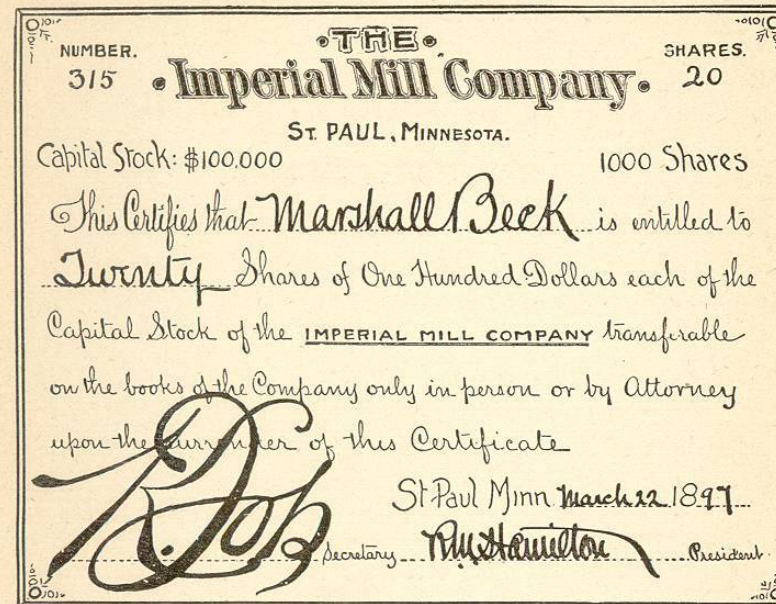 NUMBER.
315
THE
Imperial Mill Company
SHARES.
20
ST. PAUL, MINNESOTA.
Capital Stock: $100.000
1000 Shares
This Certifies that Marshall Beck is entitled to
Twenty Shares of One Hundred Dollars each of the
Capital Stock of the IMPERIAL MILL COMPANY transferable
on the books of the Company only in person or by Attorney
upon the surrender of this Certificate
St Paul Minn March 22 1897
Secretary R.M. Hamilton President